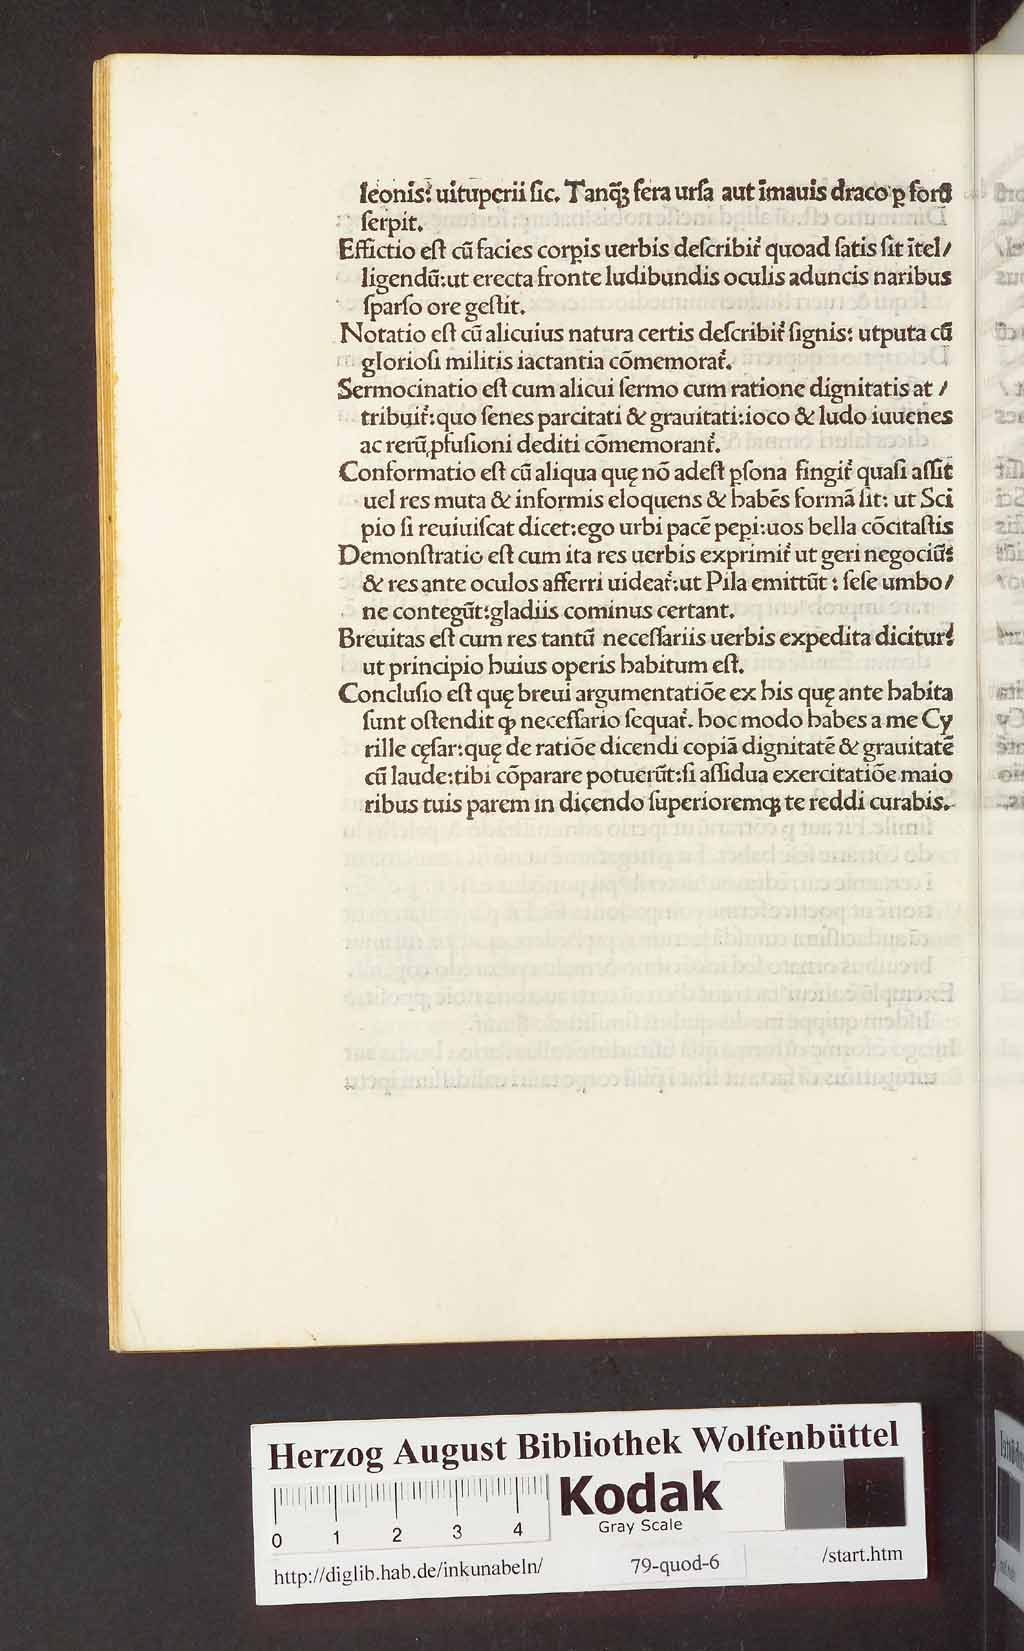 leonis: uituperii sic. Tanq̃ȝ fera ursa aut īmauis draco ꝑ forū
serpit.
Effictio est cū facies corꝑis uerbis describit᷑ quoad satis sit ītel/
ligendū:ut erecta fronte ludibundis oculis aduncis naribus
sparso ore gestit.
Notatio est cū alicuius natura certis describit᷑ signis: utputa cū
gloriosi militis iactantia cōmemorat᷑.
Sermocinatio est cum alicui sermo cum ratione dignitatis at /
tribuit᷑:quo senes parcitati & grauitati:ioco & ludo iuuenes
ac rerū ꝓfusioni dediti cōmemorant᷑.
Conformatio est cū aliqua quę nō adest ꝑsona fingit᷑ quasi assit
uel res muta & informis eloquens & habēs formā sit: ut Sci
pio si reuiuiscat dicet:ego urbi pacē pepi:uos bella cōcitastis
Demonstratio est cum ita res uerbis exprimit᷑ ut geri negociū:
& res ante oculos afferri uideat᷑:ut Pila emittūt : sese umbo/
ne contegūt:gladiis cominus certant.
Breuitas est cum res tantū necessariis uerbis expedita dicitur:
ut principio huius operis habitum est.
Conclusio est quę breui argumentatiōe ex his quę ante habita
sunt ostendit ꝙ necessario sequat᷑. hoc modo habes a me Cy
rille cęsar:quę de ratiōe dicendi copiā dignitatē & grauitatē
cū laude:tibi cōparare potuerūt:si assidua exercitatiōe maio
ribus tuis parem in dicendo superioremqȝ te reddi curabis.
Herzog August Bibliothek Wolfenbüttel
Kodak
Gray Scale
0 1 2 3 4
http://diglib.hab.de/inkunabeln/ 79-quod-6 /start.htm